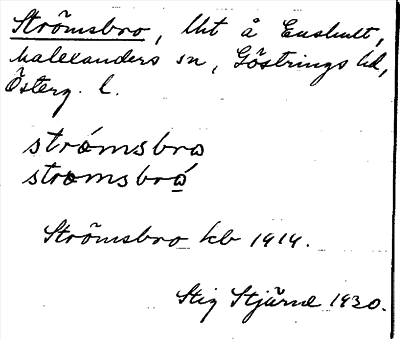 Strömsbro, lht å Enshult,
Malexanders sn, Göstrings hd,
Österg. l.
strómsbro
stromsbró
Strömsbro kb 1919.
Stig Stjärne 1930.